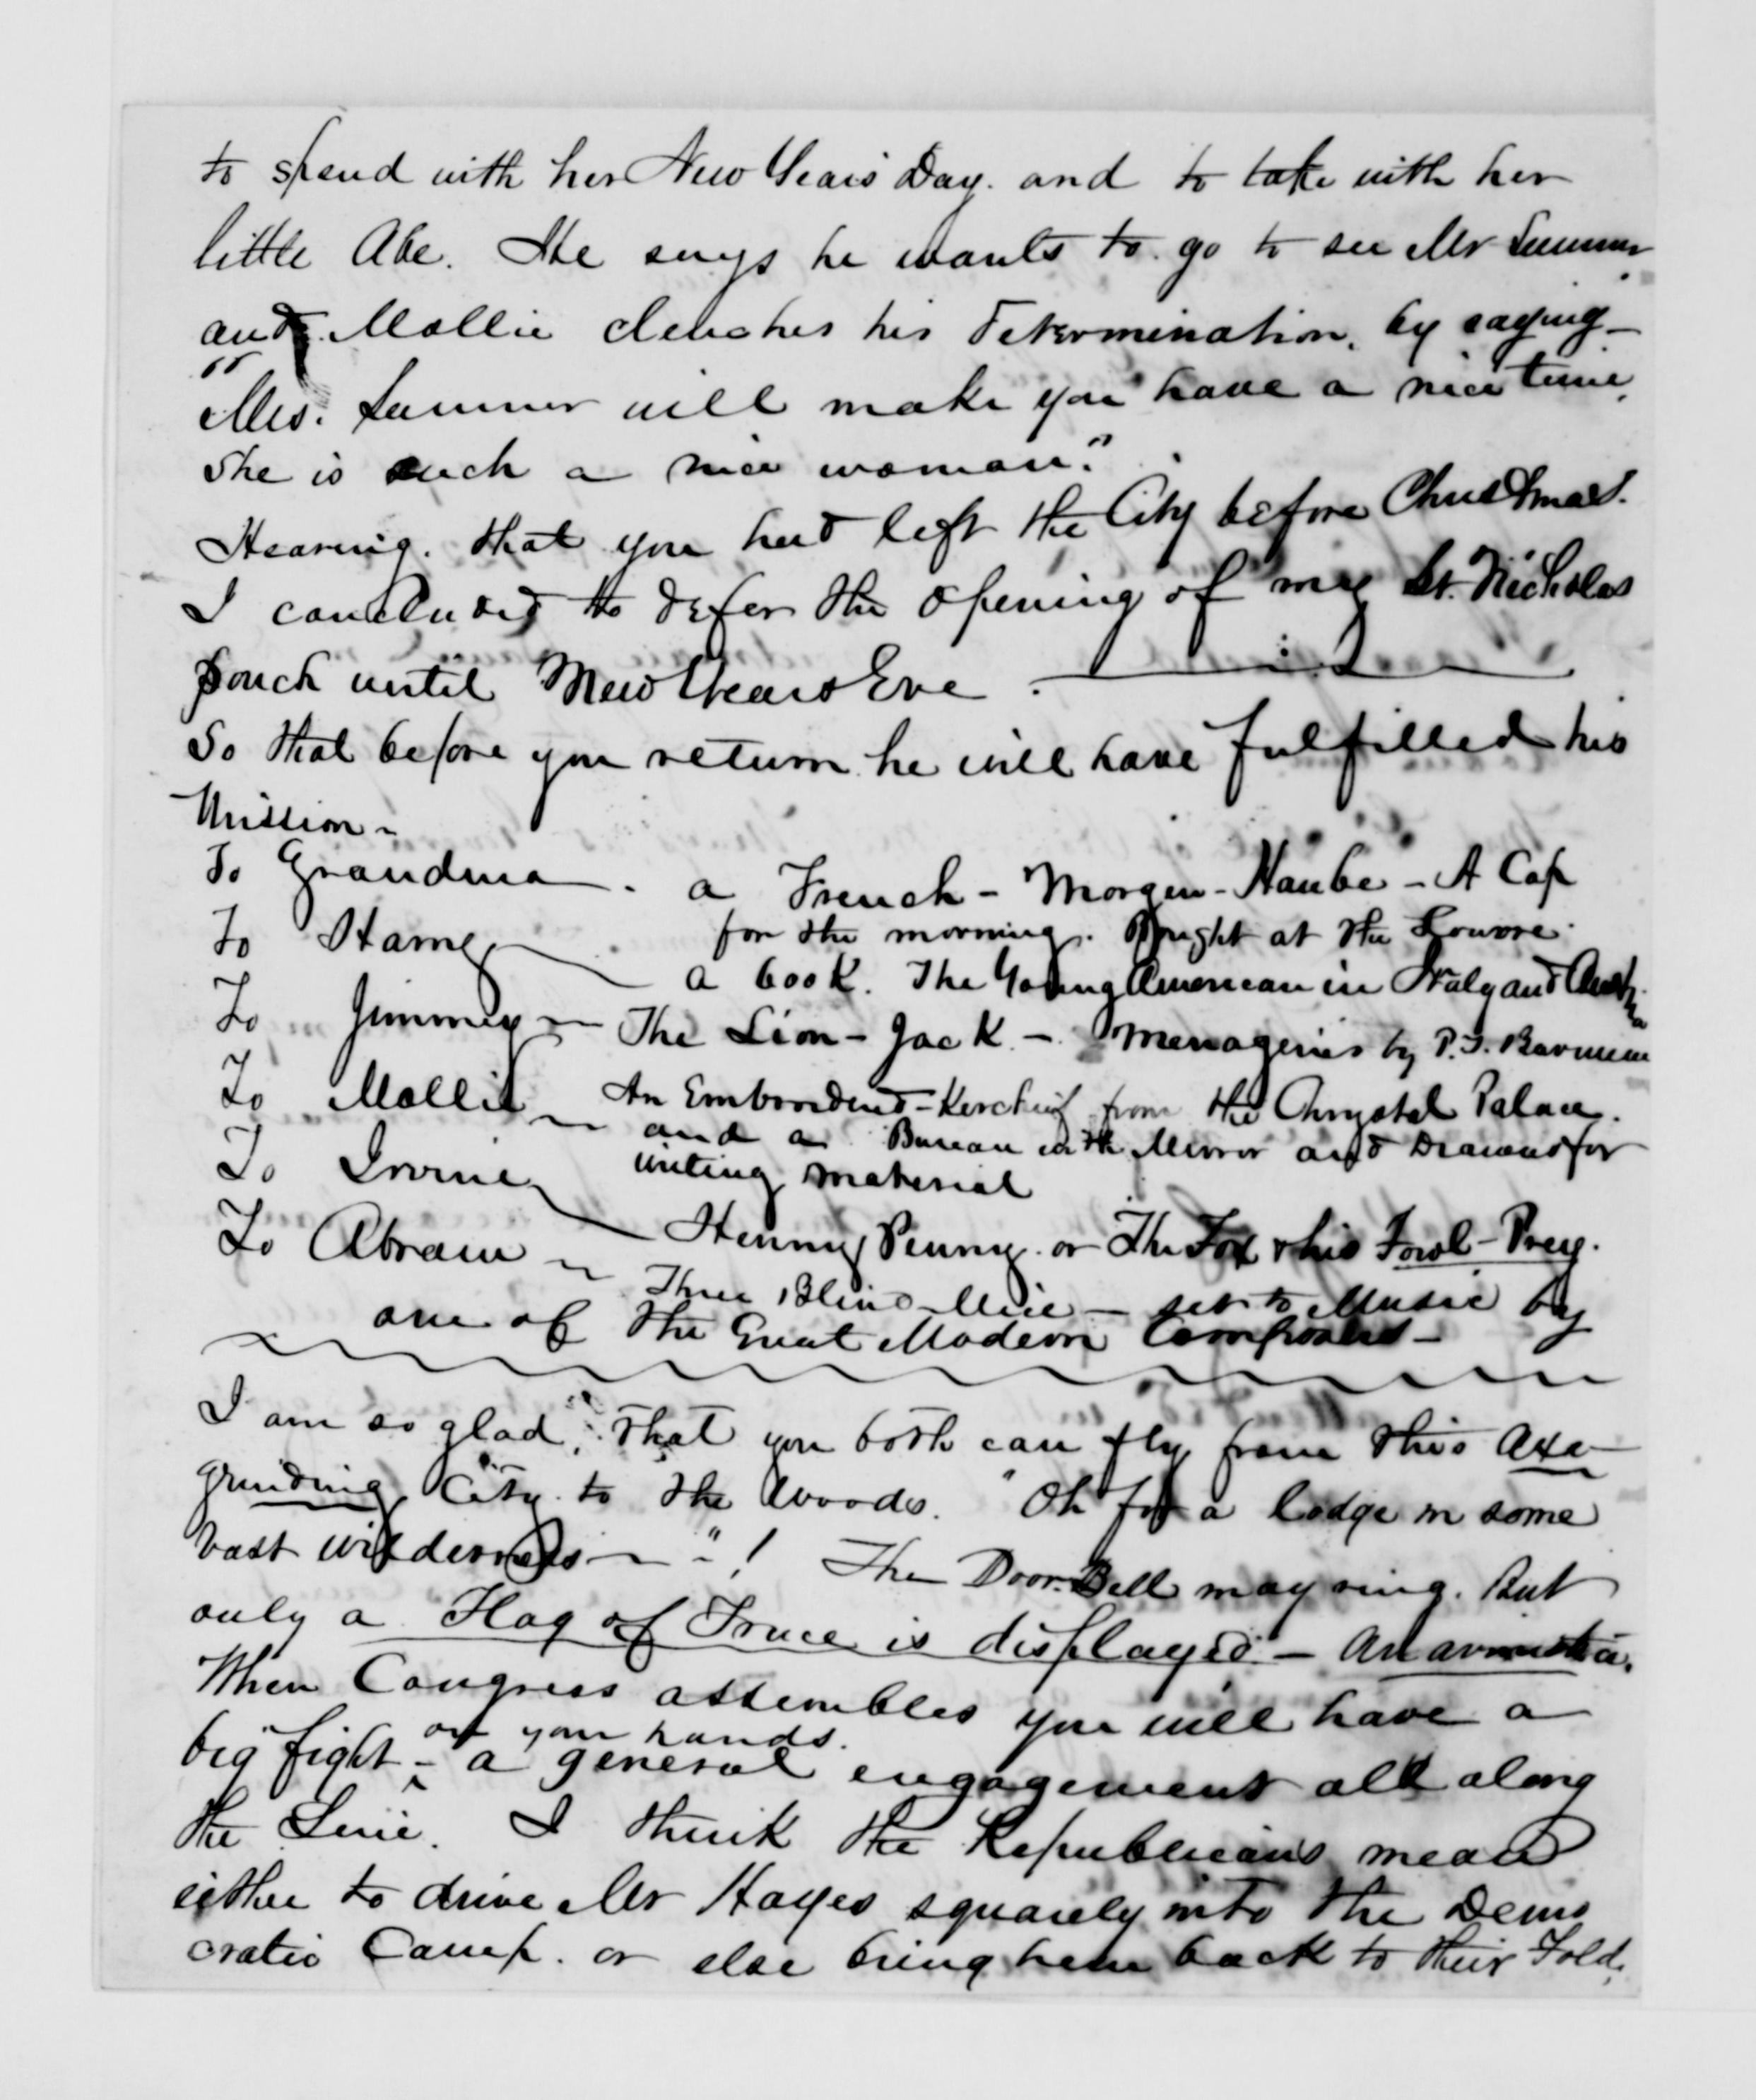 to spend with her New Years Day. and to take with her
little Abe. He says he wants to go to see Mr Sumner
and Mollie clenches his Determination, by saying—
"Mrs. Sumner will make you have a nice time,
She is such a nice woman."
Hearing. that you had left the City before Christmas.
I concluded to defer the opening of my St. Nicholas
pouch until New Years Eve.
So that before you return he will have fulfilled his
Mission—
To Grandma. a French - Morgen - Haube - A Cap
for the morning. Bought at the Louvre.
To Harry — a book. The Young American in Italy and Austria
To Jimmey — The Lion - Jack - Menageries by P. T. Barnum
To Mollie — An Embroidered - Kerchief from the Chrystal Palace.
and a Bureau with Mirror and Drawers for
writing material
To Irvine — Henny Penny. or The Fox & his Fowl - Prey.
To Abram — Three Blind Mice — set to Music by
one of the Great Modern Composers —
I am so glad, that you both can fly from this Axe-
grinding City. to the Woods. "Oh for a lodge in some
vast wilderness — "! The Door. Bell may ring. But
only a Flag of Truce is displayed — An armistice.
When Congress assembles you will have a
big fight on your hands. — a general engagement all along
the Line. I think the Republicans mean
either to drive Mr Hayes squarely into the Demo
cratic Camp. or else bring him back to their Fold.